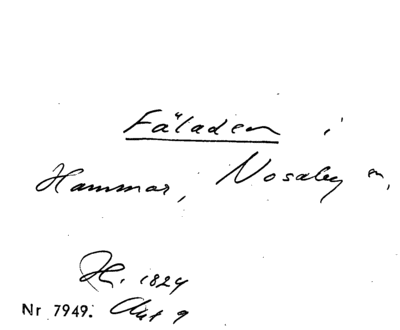 Fäladen i
Hammar, Nosaby sn,
H. 1824
Nr 7949. Akt 9